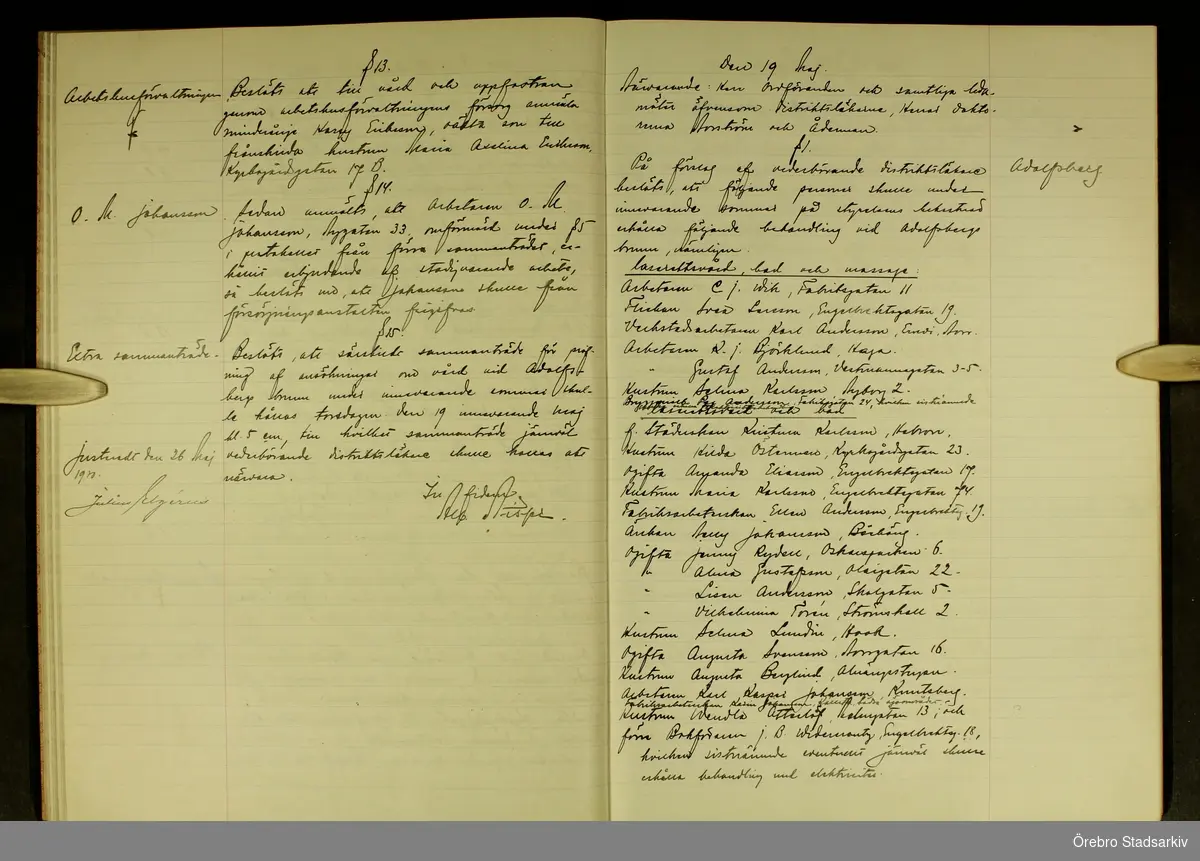 § 13.
Arbetshusförvaltningen
Beslöts att till vård och uppfostran
genom arbetshusförvaltningens försorg anmäla
minderårige Harry Eriksson, oäkta son till
frånskilda hustrun Maria Axelina Eriksson,
Kyrkogårdsgatan 17 B.
§ 14.
O. M. Johansson
Sedan anmälts, att Arbetaren O. M.
Johansson, Nygatan 33, omförmäld under § 5
i protokollet från förra sammanträdet, er-
hållit erbjudande af stadsvarande arbete,
så beslöts nu, att Johansson skulle från
försörjningsanstalten frigifvas.
§ 15.
Extra sammanträde.
Beslöts, att särskildt sammanträde för pröf-
ning af ansökningar om vård vid Adolfs-
bergs brunn under innevarande sommar skul-
le hållas torsdagen den 19 innevarande maj
kl. 5 em, till hvilket sammanträde jämväl
vederbörande distriktsläkare skulle kallas att
närvara.
Justeradt den 26 Maj
1910.
Julius Elgérus
In fidem
Den 19 Maj.
Närvarande: Herr Ordföranden och samtliga leda-
möter äfvensom Distriktsläkarne, Herrar dokto-
rerna Norström och Ådermann.
§ 1.
Adolfsberg
På förslag af vederbörande distriktsläkare
beslöts, att följande personer skulle under
innevarande sommar på styrelsens bekostnad
erhålla följande behandling vid Adolfsbergs
brunn, nämligen
lasarettsvård, bad och massage:
Arbetaren C. J. Wik, Fabriksgatan 11
Flickan Svea Larsson, Engelbrektsgatan 19.
Verkstadsarbetaren Karl Andersson, Norr.
Arbetaren K. J. Björklund, Haga.
" Gustaf Andersson, Vestmannagatan 3-5.
Hustrun Selma Karlsson Nyborg 2.
Andersson, Fabriksgatan 24, hvilken sistnämnde
lasarettsvård och bad
f. Städerskan Kristina Karlsson, Hebron.
Hustrun Hilda Österman, Kyrkogårdsgatan 23.
Ogifta Amanda Eliasson, Engelbrektsgatan 17.
Hustrun Maria Karlsson, Engelbrektsgatan 74.
Fabriksarbeterskan Ellen Andersson, Engelbrektsg. 19.
Änkan Johansson,
Ogifta Jenny Rydell, Oskarsparken 6.
" Alma Gustafsson, Olaigatan 22.
" Lisen Andersson, Skolgatan 5.
" Vilhelmina Torén, Strömshall 2.
Hustrun Selma Lundin, Hook.
Ogifta Augusta Svensson, Norrgatan 16.
Hustrun Augusta Berglund, Almängestugan.
Arbetaren Karl Kasper Johansson, Knutsberg.
Fabriksarbeterskan Karin Johansson,
Hustrun Wendla Atterlöf, 13; och
förre Bokföraren J. B. Widermontz, Engelbrektsg. 18,
hvilken sistnämnde eventuellt jämväl skulle
erhålla behandling med elektricitet.
Örebro Stadsarkiv